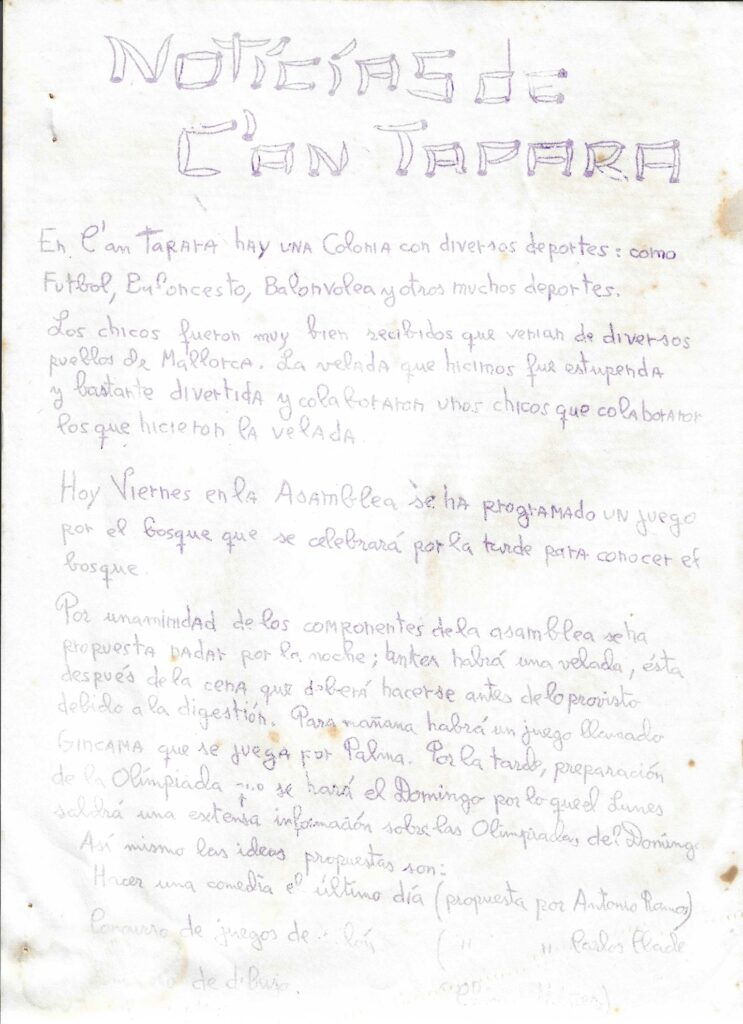 NOTÍCÍAS de
C'AN TAPARA
En C'an TAPARA hay UNA Colonia con diversos deportes: como
Futbol, Baloncesto, Balonvolea y otros muchos deportes.
Los chicos fueron muy bien recibidos que venian de diversos
puellos de Mallorca. La velada que hicimos fue estupenda
y bastante divertida y colaboraron unos chicos que colaboraron
los que hicieron la velada.
Hoy Viernes en la Asamblea se ha programado un juego
por el bosque que se celebrará por la tarde para conocer el
bosque.
Por unaminidad de los componentes de la asamblea se ha
propuesta nadar por la noche; antes habrá una velada, ésta
después de la cena que deberá hacerse antes de lo provisto
debido a la digestión. Para mañana habrá un juego llamado
GINCAMA que se juega por Palma. Por la tarde, preparación
de la Olímpiada se hará el Domingo por lo que el Lunes
saldrá una extensa información sobre las Olimpiadas del Domingo
Así mismo las ideas propuestas son:
Hacer una comedia el último día (propuesta por Antonio Ramos)
Concurso de juegos de ( " " Carlos
de dibujo